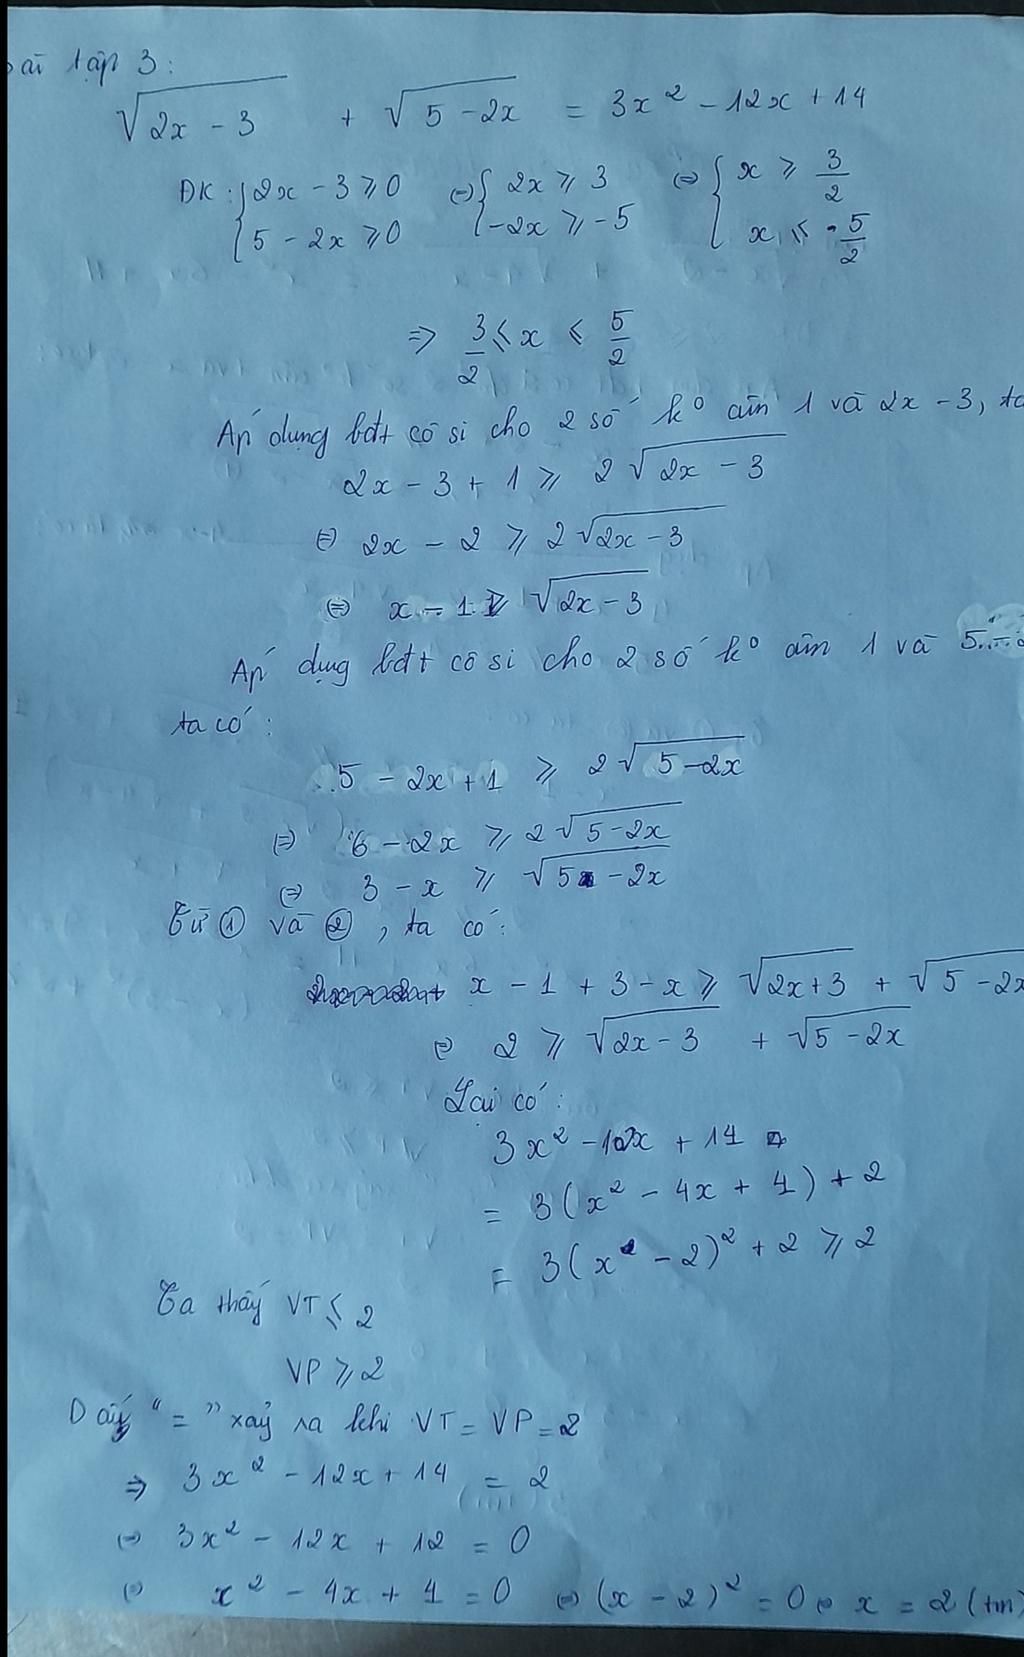 ài tập 3:
√(2x - 3) + √(5 - 2x) = 3x² - 12x + 14
ĐK: { 2x - 3 ⩾ 0 ⇔ { 2x ⩾ 3 ⇔ { x ⩾ 3/2
5 - 2x ⩾ 0 -2x ⩾ -5 x ⩽ 5/2
⇒ 3/2 ⩽ x ⩽ 5/2
Áp dụng bđt cô si cho 2 số k° âm 1 và 2x - 3, ta
2x - 3 + 1 ⩾ 2√(2x - 3)
⇔ 2x - 2 ⩾ 2√(2x - 3)
⇔ x - 1 ⩾ √(2x - 3)
Áp dụng bđt cô si cho 2 số k° âm 1 và 5 -
ta có:
5 - 2x + 1 ⩾ 2√(5 - 2x)
⇔ 6 - 2x ⩾ 2√(5 - 2x)
⇔ 3 - x ⩾ √(5 - 2x)
Từ ① và ②, ta có:
x - 1 + 3 - x ⩾ √(2x + 3) + √(5 - 2x)
⇔ 2 ⩾ √(2x - 3) + √(5 - 2x)
Lại có:
3x² - 12x + 14
= 3(x² - 4x + 4) + 2
= 3(x - 2)² + 2 ⩾ 2
Ta thấy VT ⩽ 2
VP ⩾ 2
Dấy "=" xảy ra khi VT = VP = 2
⇒ 3x² - 12x + 14 = 2
⇔ 3x² - 12x + 12 = 0
⇔ x² - 4x + 4 = 0 ⇔ (x - 2)² = 0 ⇔ x = 2 (tm)